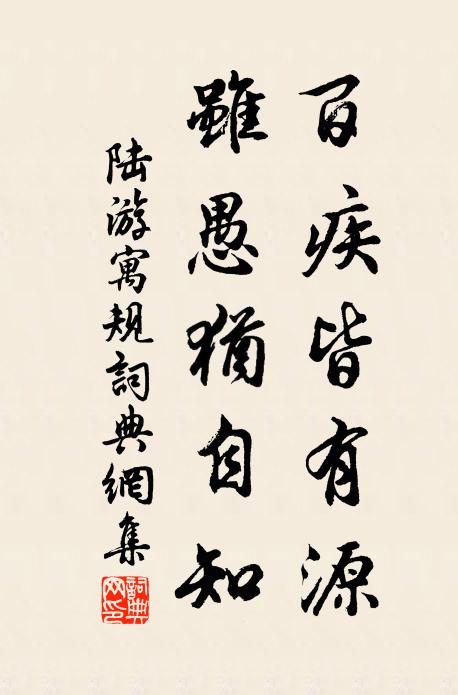 百疾皆有源
雖愚猶自知
陸游寓規詞典網集
詞典网印